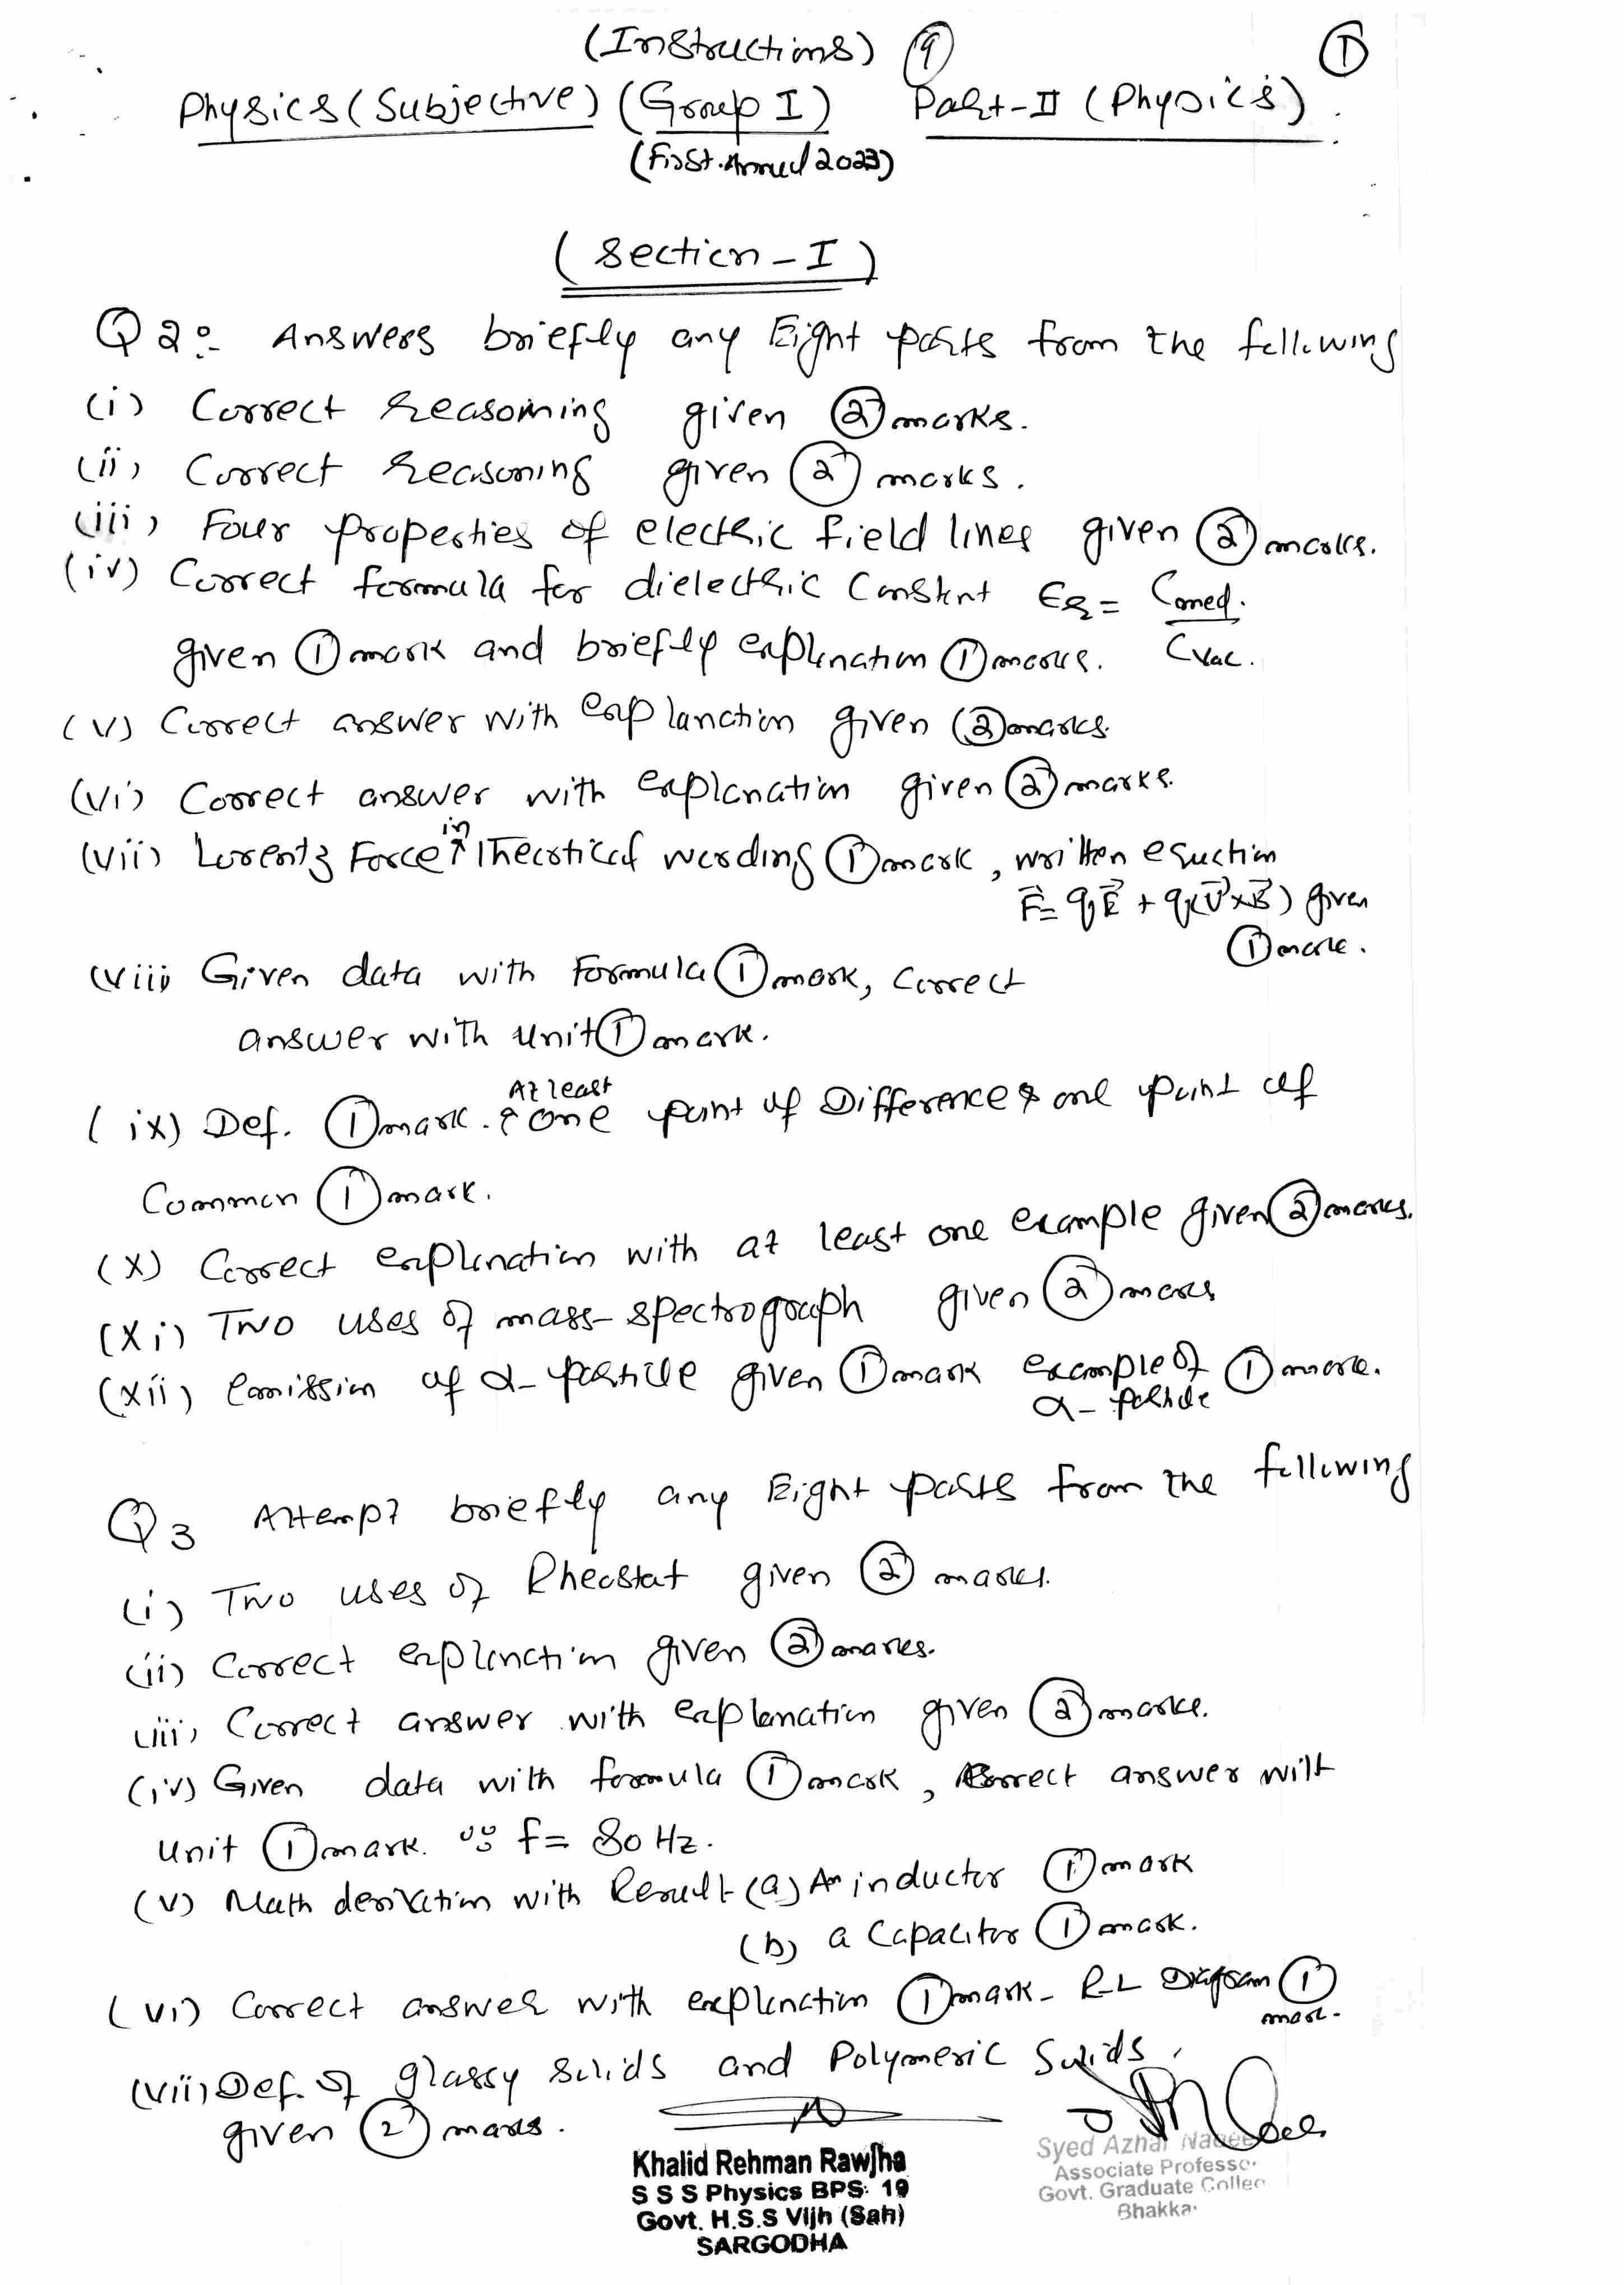 (Instructions) (9) (1)
Physics (Subjective) (Group I) Part-II (Physics)
(First Annual 2023)
(Section - I)
Q 2:- Answers briefly any Eight parts from the following
(i) Correct reasoning given (2) marks.
(ii) Correct reasoning given (2) marks.
(iii) Four properties of electric field lines given (2) marks.
(iv) Correct formula for dielectric Constant Er = Cmed.
given (1) mark and briefly explanation (1) marks. Cvac.
(v) Correct answer with explanation given (2) marks.
(vi) Correct answer with explanation given (2) marks.
(vii) Lorentz Force in Theortical wording (1) mark, written equation
F⃗ = qE⃗ + q(V⃗×B⃗) given
(1) mark.
(viii) Given data with Formula (1) mark, Correct
answer with unit (1) mark.
(ix) Def. (1) mark. & At least one point of Difference & one point of
Common (1) mark.
(x) Correct explanation with at least one example given (2) marks.
(xi) Two uses of mass-spectrograph given (2) marks
(xii) emission of α-particle given (1) mark example of α-particle (1) mark.
Q 3 Attempt briefly any Eight parts from the following
(i) Two uses of Rheostat given (2) marks.
(ii) Correct explanation given (2) marks.
(iii) Correct answer with explanation given (2) marks.
(iv) Given data with formula (1) mark, Correct answer with
unit (1) mark. f = 80 Hz.
(v) Math derivation with Result (a) An inductor (1) mark
(b) a Capacitor (1) mark.
(vi) Correct answer with explanation (1) mark - R-L Diagram (1)
mark.
(vii) Def. of glassy solids and Polymeric Solids.
given (2) marks.
Khalid Rehman Rawjha
S S S Physics BPS: 19
Govt. H.S.S Vijh (Sah)
SARGODHA
Syed Azhar
Associate Professor
Govt. Graduate College
Bhakkar